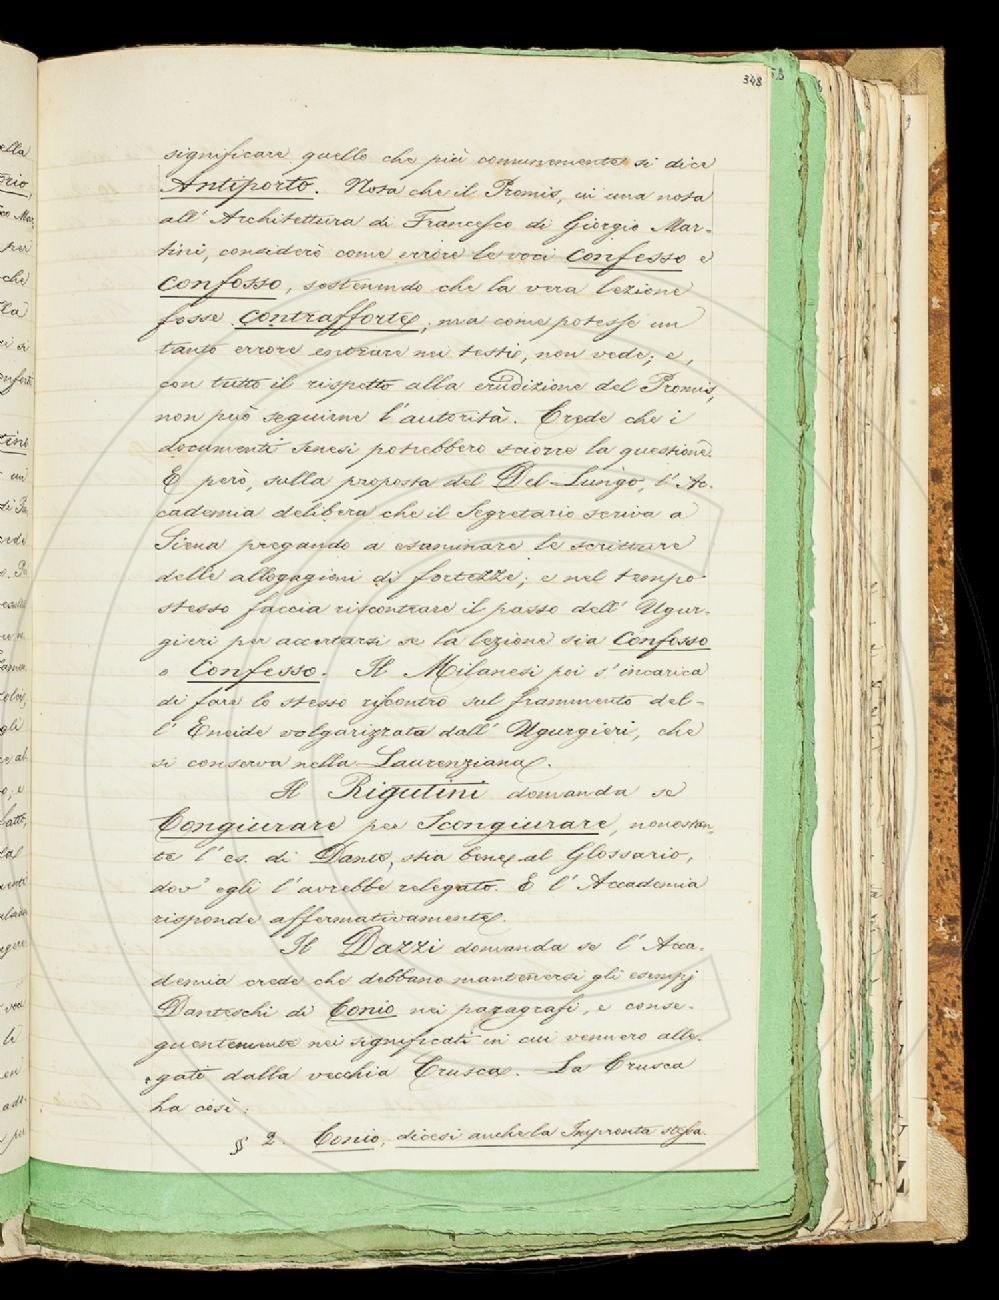 348
significare quello che più comunemente si dice
Antiporto. Nota che il Promis, in una nota
all' Architettura di Francesco di Giorgio Mar-
tini, considerò come errore le voci Confesso e
Confosso, sostenendo che la vera lezione
fosse Contrafforte; ma come potesse un
tanto errore entrare nei testi, non vede; e,
con tutto il rispetto alla erudizione del Promis,
non può seguirne l'autorità. Crede che i
documenti senesi potrebbero sciorre la questione.
E però, sulla proposta del Del-Lungo, l'Ac-
cademia delibera che il Segretario scriva a
Siena pregando a esaminare le scritture
delle allogagioni di fortezze; e nel tempo
stesso faccia riscontrare il passo dell' Ugur-
gieri per accertarsi se la lezione sia Confosso
o Confesso. Il Milanesi poi s'incarica
di fare lo stesso riscontro sul frammento del-
l' Eneide volgarizzata dall' Ugurgieri, che
si conserva nella Laurenziana.
Il Rigutini domanda se
Congiurare per Scongiurare, nonostan-
te l'es. di Dante, stia bene al Glossario,
dov' egli l'avrebbe relegato. E l'Accademia
risponde affermativamente.
Il Dazzi domanda se l'Acca-
demia crede che debbano mantenersi gli esempj
Danteschi di Conio nei paragrafi, e conse-
guentemente nei significati in cui vennero alle-
gati dalla vecchia Crusca. La Crusca
ha così:
§ 2. Conio, dicesi anche la Impronta stessa.